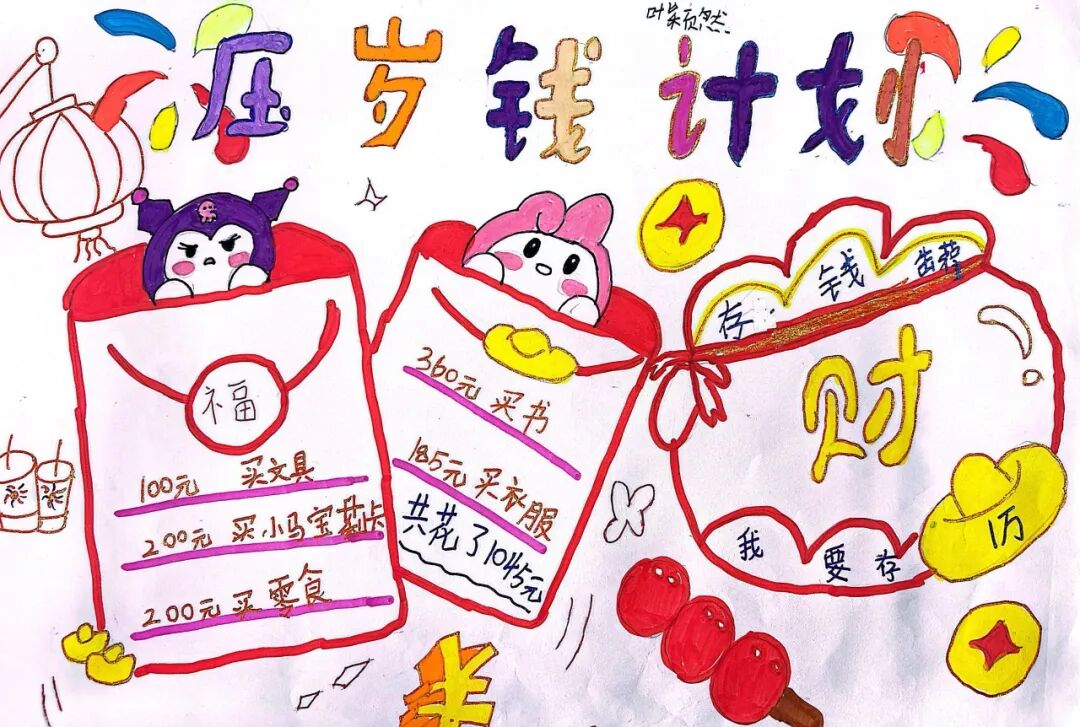 叶紫颜然
压岁钱计划
福
100元 买文具
200元 买小马宝莉卡
200元 买零食
360元 买书
185元 买衣服
共花了1045元
存钱
财
我要存
历